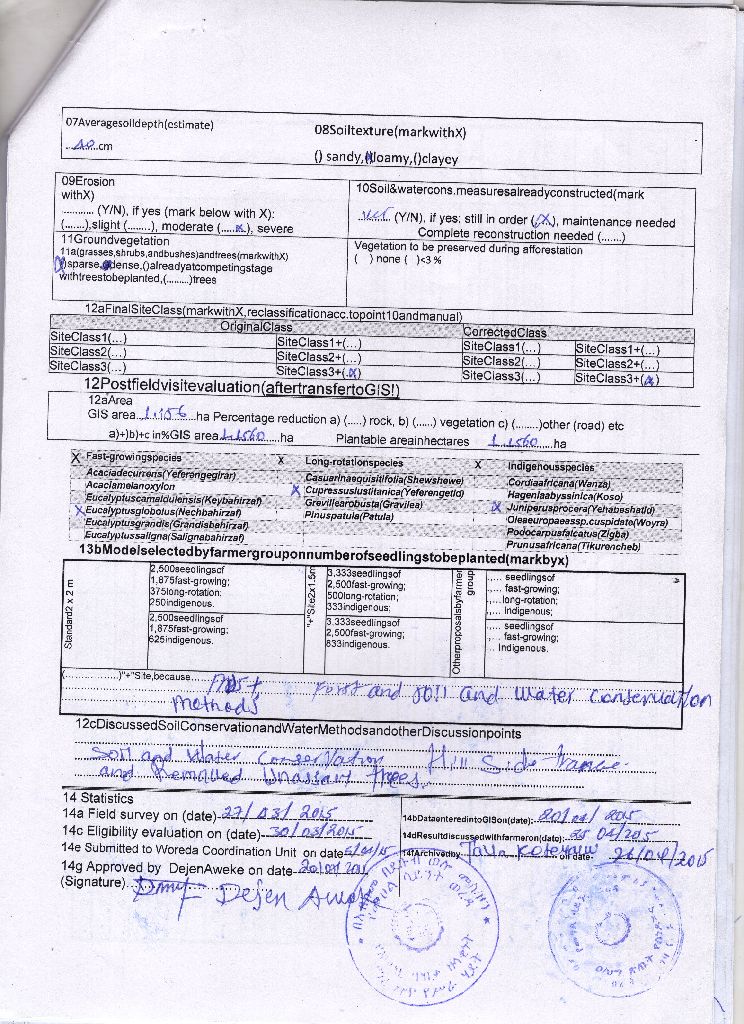 07Averagesoildepth(estimate)
08Soiltexture(markwithX)
cm
() sandy, loamy,()clayey
09Erosion
withX)
............ (Y/N), if yes (mark below with X):
(.......),slight (........), moderate (.....x), severe
10Soil&watercons.measuresalreadyconstructed(mark
(Y/N), if yes: still in order (X), maintenance needed
Complete reconstruction needed (......)
11Groundvegetation
11a(grasses,shrubs,andbushes)andtrees(markwithX)
sparse, dense,()alreadyatcompetingstage
withtreestobeplanted,(........)trees
Vegetation to be preserved during afforestation
( ) none ( )<3 %
12aFinalSiteClass(markwithX,reclassificationacc.topoint10andmanual)
OriginalClass CorrectedClass
SiteClass1(...) SiteClass1+(...) SiteClass1(...) SiteClass1+(...)
SiteClass2(...) SiteClass2+(...) SiteClass2(...) SiteClass2+(...)
SiteClass3(...) SiteClass3+(.x) SiteClass3(...) SiteClass3+(x)
12Postfieldvisitevaluation(aftertransfertoGIS!)
12aArea
GIS area..1.156..ha Percentage reduction a) (.....) rock, b) (......) vegetation c) (.......)other (road) etc
a)+)b)+c in%GIS area 1.1560 ha Plantable areainhectares 1.1560 ha
X Fast-growingspecies X Long-rotationspecies X Indigenousspecies
Acaciadecurrens(Yeferengegirar) Casuarinaequisitifolia(Shewshewe) Cordiaafricana(Wanza)
Acaciamelanoxylon X Cupressuslusitanica(Yeferengetid) Hageniaabyssinica(Koso)
Eucalyptuscamaldulensis(Keybahirzaf) Grevillearobusta(Gravilea) X Juniperusprocera(Yehabeshatid)
X Eucalyptusglobolus(Nechbahirzaf) Pinuspatula(Patula) Oleaeuropaeassp.cuspidate(Woyra)
Eucalyptusgrandis(Grandisbahirzaf) Podocarpusfalcatus(Zigba)
Eucalyptussaligna(Salignabahirzaf) Prunusafricana(Tikurencheb)
13bModelselectedbyfarmergrouponnumberofseedlingstobeplanted(markbyx)
Standard2 x 2 m
2,500seedlingsof
1,875fast-growing;
375long-rotation;
250indigenous.
2,500seedlingsof
1,875fast-growing;
625indigenous.
"+"Site2x1.5m
3,333seedlingsof
2,500fast-growing;
500long-rotation;
333indigenous;
3,333seedlingsof
2,500fast-growing;
833indigenous.
Otherproposalsbyfarmer
group
..... seedlingsof
..... fast-growing;
.....long-rotation;
..... Indigenous;
..... seedlingsof
..... fast-growing;
... Indigenous.
(...............)"+"Site,because and soil and water conservation
methods
12cDiscussedSoilConservationandWaterMethodsandotherDiscussionpoints
Soil and Water Conservation Hill Side
and Removed trees
14 Statistics
14a Field survey on (date) 27/03/2015
14bDataenteredintoGISon(date): 20/04/2015
14c Eligibility evaluation on (date) 30/03/2015
14dResultdiscussedwithfarmeron(date): 25 04/2015
14e Submitted to Woreda Coordination Unit on date
14fArchivedby on date 26/04/2015
14g Approved by DejenAweke on date
(Signature) Dejen